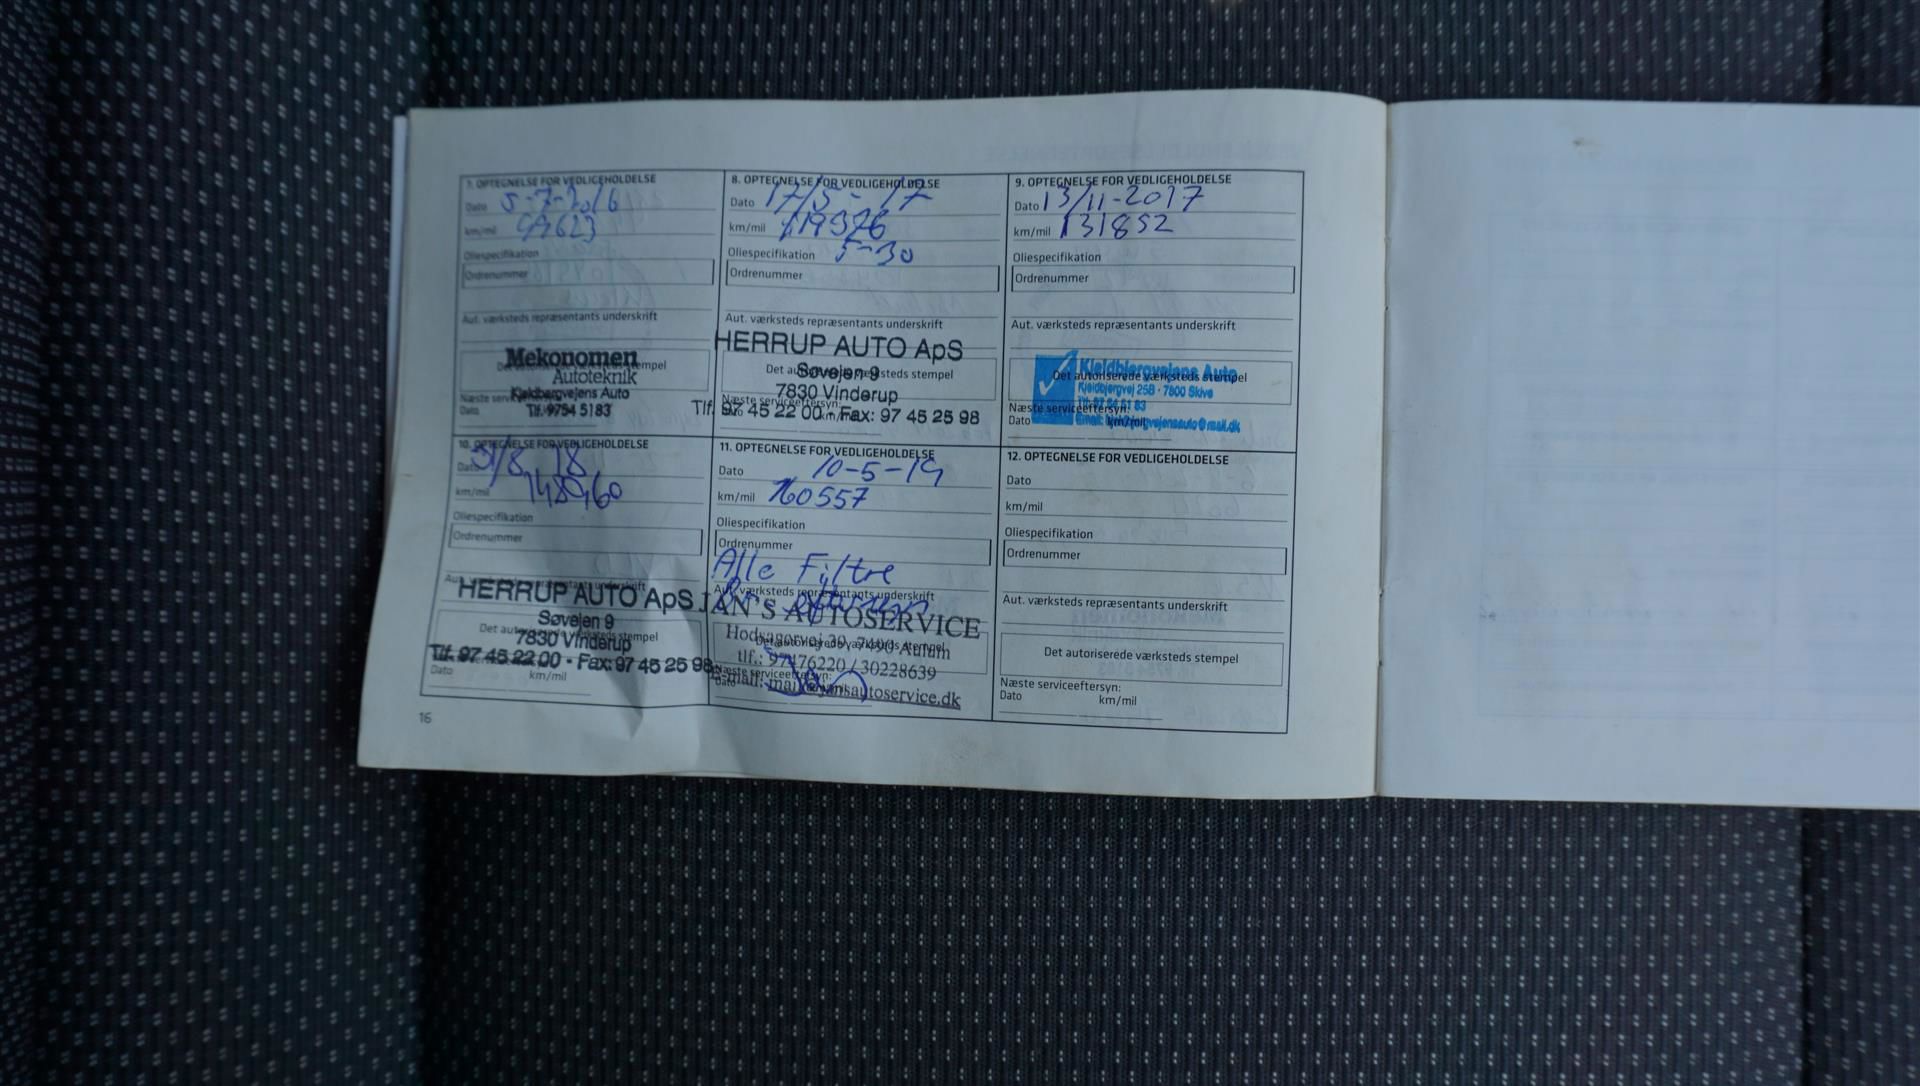 7. OPTEGNELSE FOR VEDLIGEHOLDELSE
Dato 5-7-2016
km/mil
Oliespecifikation
Ordrenummer
Aut. værksteds repræsentants underskrift
Mekonomen
Autoteknik
Kjeldbergvejens Auto
Tlf. 9754 5183
Dato
8. OPTEGNELSE FOR VEDLIGEHOLDELSE
Dato 17/5-17
km/mil 119376
Oliespecifikation 5-30
Ordrenummer
Aut. værksteds repræsentants underskrift
HERRUP AUTO ApS
Søvejen 9
7830 Vinderup
Tlf. 97 45 22 00 · Fax: 97 45 25 98
9. OPTEGNELSE FOR VEDLIGEHOLDELSE
Dato 13/11-2017
km/mil 131852
Oliespecifikation
Ordrenummer
Aut. værksteds repræsentants underskrift
Kjeldbjergvejens Auto
Det autoriserede værksteds stempel
Kjeldbjergvej 25B · 7800 Skive
Næste serviceeftersyn:
Dato km/mil
10. OPTEGNELSE FOR VEDLIGEHOLDELSE
Dato 31/8 18
km/mil 148060
Oliespecifikation
Ordrenummer
HERRUP AUTO ApS
Søvejen 9
7830 Vinderup
Tlf. 97 45 22 00 · Fax: 97 45 25 98
Dato km/mil
11. OPTEGNELSE FOR VEDLIGEHOLDELSE
Dato 10-5-19
km/mil 160557
Oliespecifikation
Ordrenummer
Alle Filtre
Aut. værksteds repræsentants underskrift
JAN'S AUTOSERVICE
Hodsagervej 39, 7490 Aulum
tlf.: 97476220 / 30228639
Næste serviceeftersyn:
E-mail: mail@jansautoservice.dk
12. OPTEGNELSE FOR VEDLIGEHOLDELSE
Dato
km/mil
Oliespecifikation
Ordrenummer
Aut. værksteds repræsentants underskrift
Det autoriserede værksteds stempel
Næste serviceeftersyn:
Dato km/mil
16